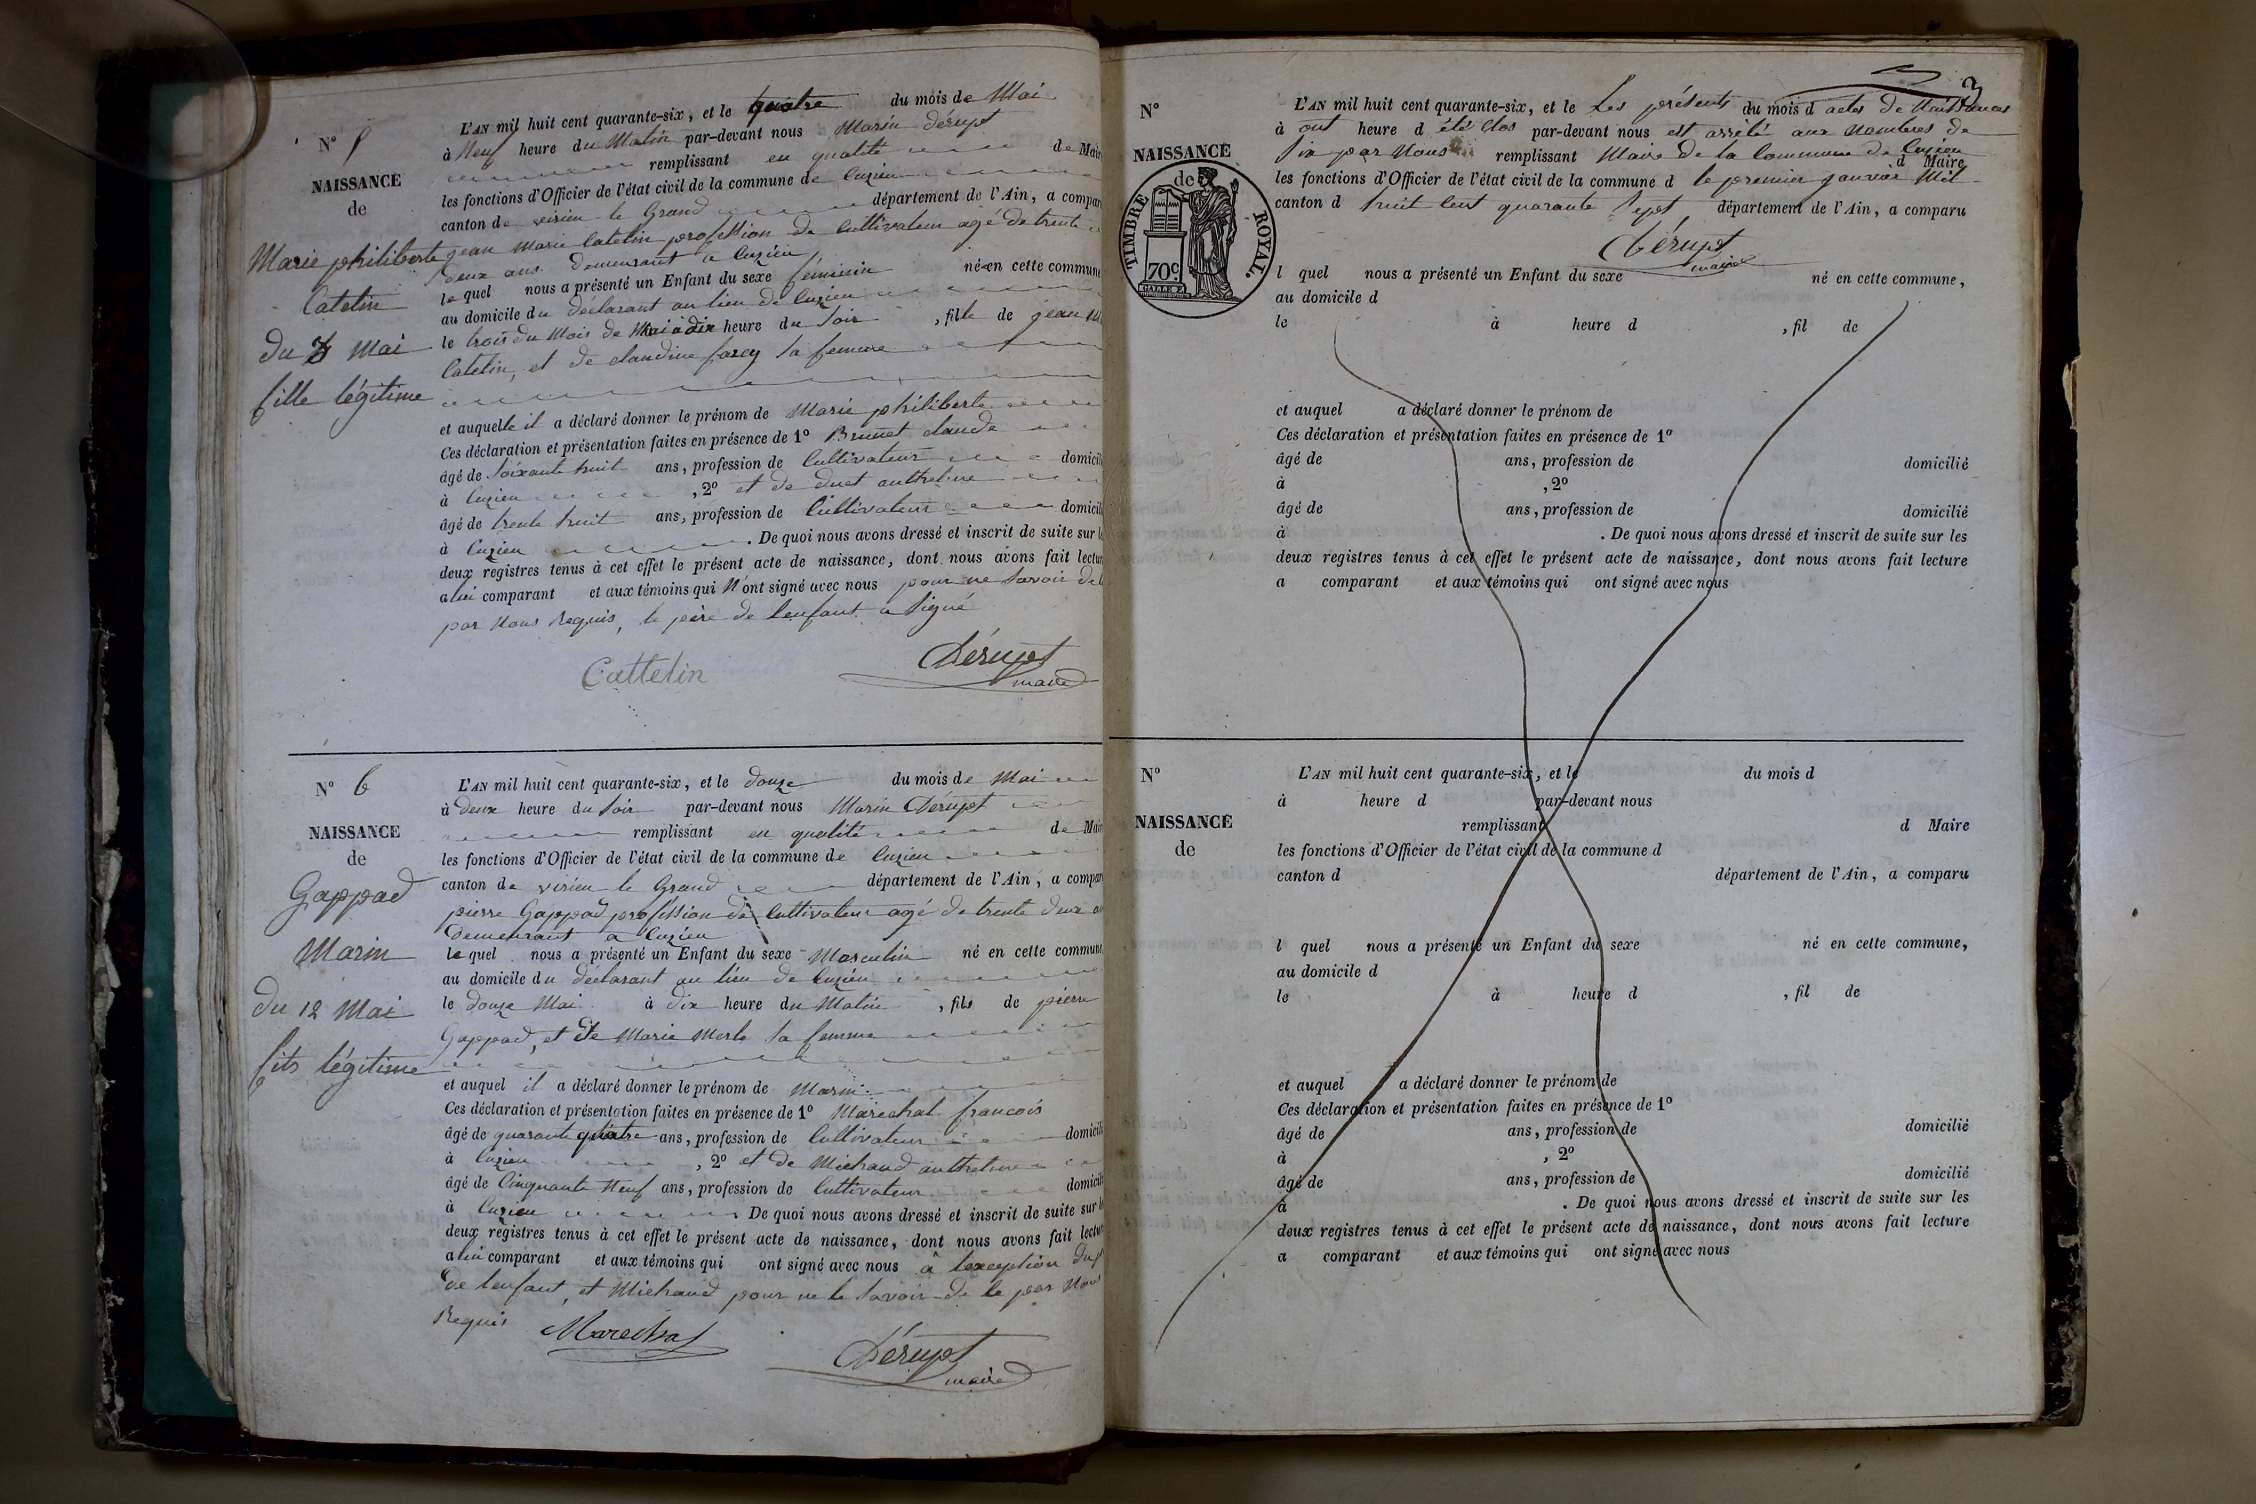 N° 5
NAISSANCE
de
Marie philiberte
Catelin
du 3 Mai
fille légitime
L'AN mil huit cent quarante-six, et le quatre du mois de Mai
à Neuf heure du Matin par-devant nous Marin dérupt
remplissant en qualité de Mair
les fonctions d'Officier de l'état civil de la commune de Cuzieu
canton de virieu le Grand département de l'Ain, a compar
jean Marie Catelin profession de Cultivateur agé de trente
deux ans demeurant a Cuzieu
lequel nous a présenté un Enfant du sexe féminin né en cette commune
au domicile du déclarant au lieu de Cuzieu
le trois du Mois de Mai à dix heure du Soir, fille de jean M
Catelin, et de claudine farcy sa femme
et auquelle il a déclaré donner le prénom de Marie philiberte
Ces déclaration et présentation faites en présence de 1° Brunet claude
âgé de Soixante huit ans, profession de Cultivateur domicili
à Cuzieu, 2° et de duet anthelme
âgé de trente huit ans, profession de Cultivateur domicili
à Cuzieu. De quoi nous avons dressé et inscrit de suite sur l
deux registres tenus à cet effet le présent acte de naissance, dont nous avons fait lectur
a lui comparant et aux témoins qui N'ont signé avec nous pour ne Savoir de l
par Nous Requis, le père de lenfant a Signé
Cattelin Dérupt
maire
N° 6
NAISSANCE
de
Gappad
Marin
du 12 Mai
fils légitime
L'AN mil huit cent quarante-six, et le douze du mois de Mai
à Deux heure du Soir par-devant nous Marin Dérupt
remplissant en qualité de Mair
les fonctions d'Officier de l'état civil de la commune de Cuzieu
canton de virieu le Grand département de l'Ain, a compar
pierre Gappad profession de Cultivateur agé de trente deux a
demeurant a Cuzieu
lequel nous a présenté un Enfant du sexe Masculin né en cette commun
au domicile du déclarant au lieu de Cuzieu
le douze Mai à dix heure du Matin, fils de pierre
Gappad, et de Marie Merle sa femme
et auquel il a déclaré donner le prénom de Marin
Ces déclaration et présentation faites en présence de 1° Marechal francois
âgé de quarante quatre ans, profession de Cultivateur domicili
à Cuzieu, 2° et de Michaud anthelme
âgé de Cinquante Neuf ans, profession de Cultivateur domicili
à Cuzieu. De quoi nous avons dressé et inscrit de suite sur l
deux registres tenus à cet effet le présent acte de naissance, dont nous avons fait lectur
a lui comparant et aux témoins qui ont signé avec nous à lexception du p
de lenfant, et Michaud pour ne le Savoir de le par Nous
Requis Marechal
Dérupt
maire
3
N°
NAISSANCE
de
TIMBRE ROYAL.
70c
L'AN mil huit cent quarante-six, et le Les présents du mois d actes de Naissances
à ont heure d été Clos par-devant nous et arrêté aux Nombres de
Six par Nous remplissant Maire de la Commune de Cuzieu d Maire
les fonctions d'Officier de l'état civil de la commune d le premier janvier Mil
canton d huit Cent quarante Sept département de l'Ain, a comparu
Dérupt
maire
l quel nous a présenté un Enfant du sexe né en cette commune,
au domicile d
le à heure d , fil de
et auquel a déclaré donner le prénom de
Ces déclaration et présentation faites en présence de 1°
âgé de ans, profession de domicilié
à , 2°
âgé de ans, profession de domicilié
à . De quoi nous avons dressé et inscrit de suite sur les
deux registres tenus à cet effet le présent acte de naissance, dont nous avons fait lecture
a comparant et aux témoins qui ont signé avec nous
N°
NAISSANCE
de
L'AN mil huit cent quarante-six, et le du mois d
à heure d par-devant nous
remplissant d Maire
les fonctions d'Officier de l'état civil de la commune d
canton d département de l'Ain, a comparu
l quel nous a présenté un Enfant du sexe né en cette commune,
au domicile d
le à heure d , fil de
et auquel a déclaré donner le prénom de
Ces déclaration et présentation faites en présence de 1°
âgé de ans, profession de domicilié
à , 2°
âgé de ans, profession de domicilié
à . De quoi nous avons dressé et inscrit de suite sur les
deux registres tenus à cet effet le présent acte de naissance, dont nous avons fait lecture
a comparant et aux témoins qui ont signé avec nous